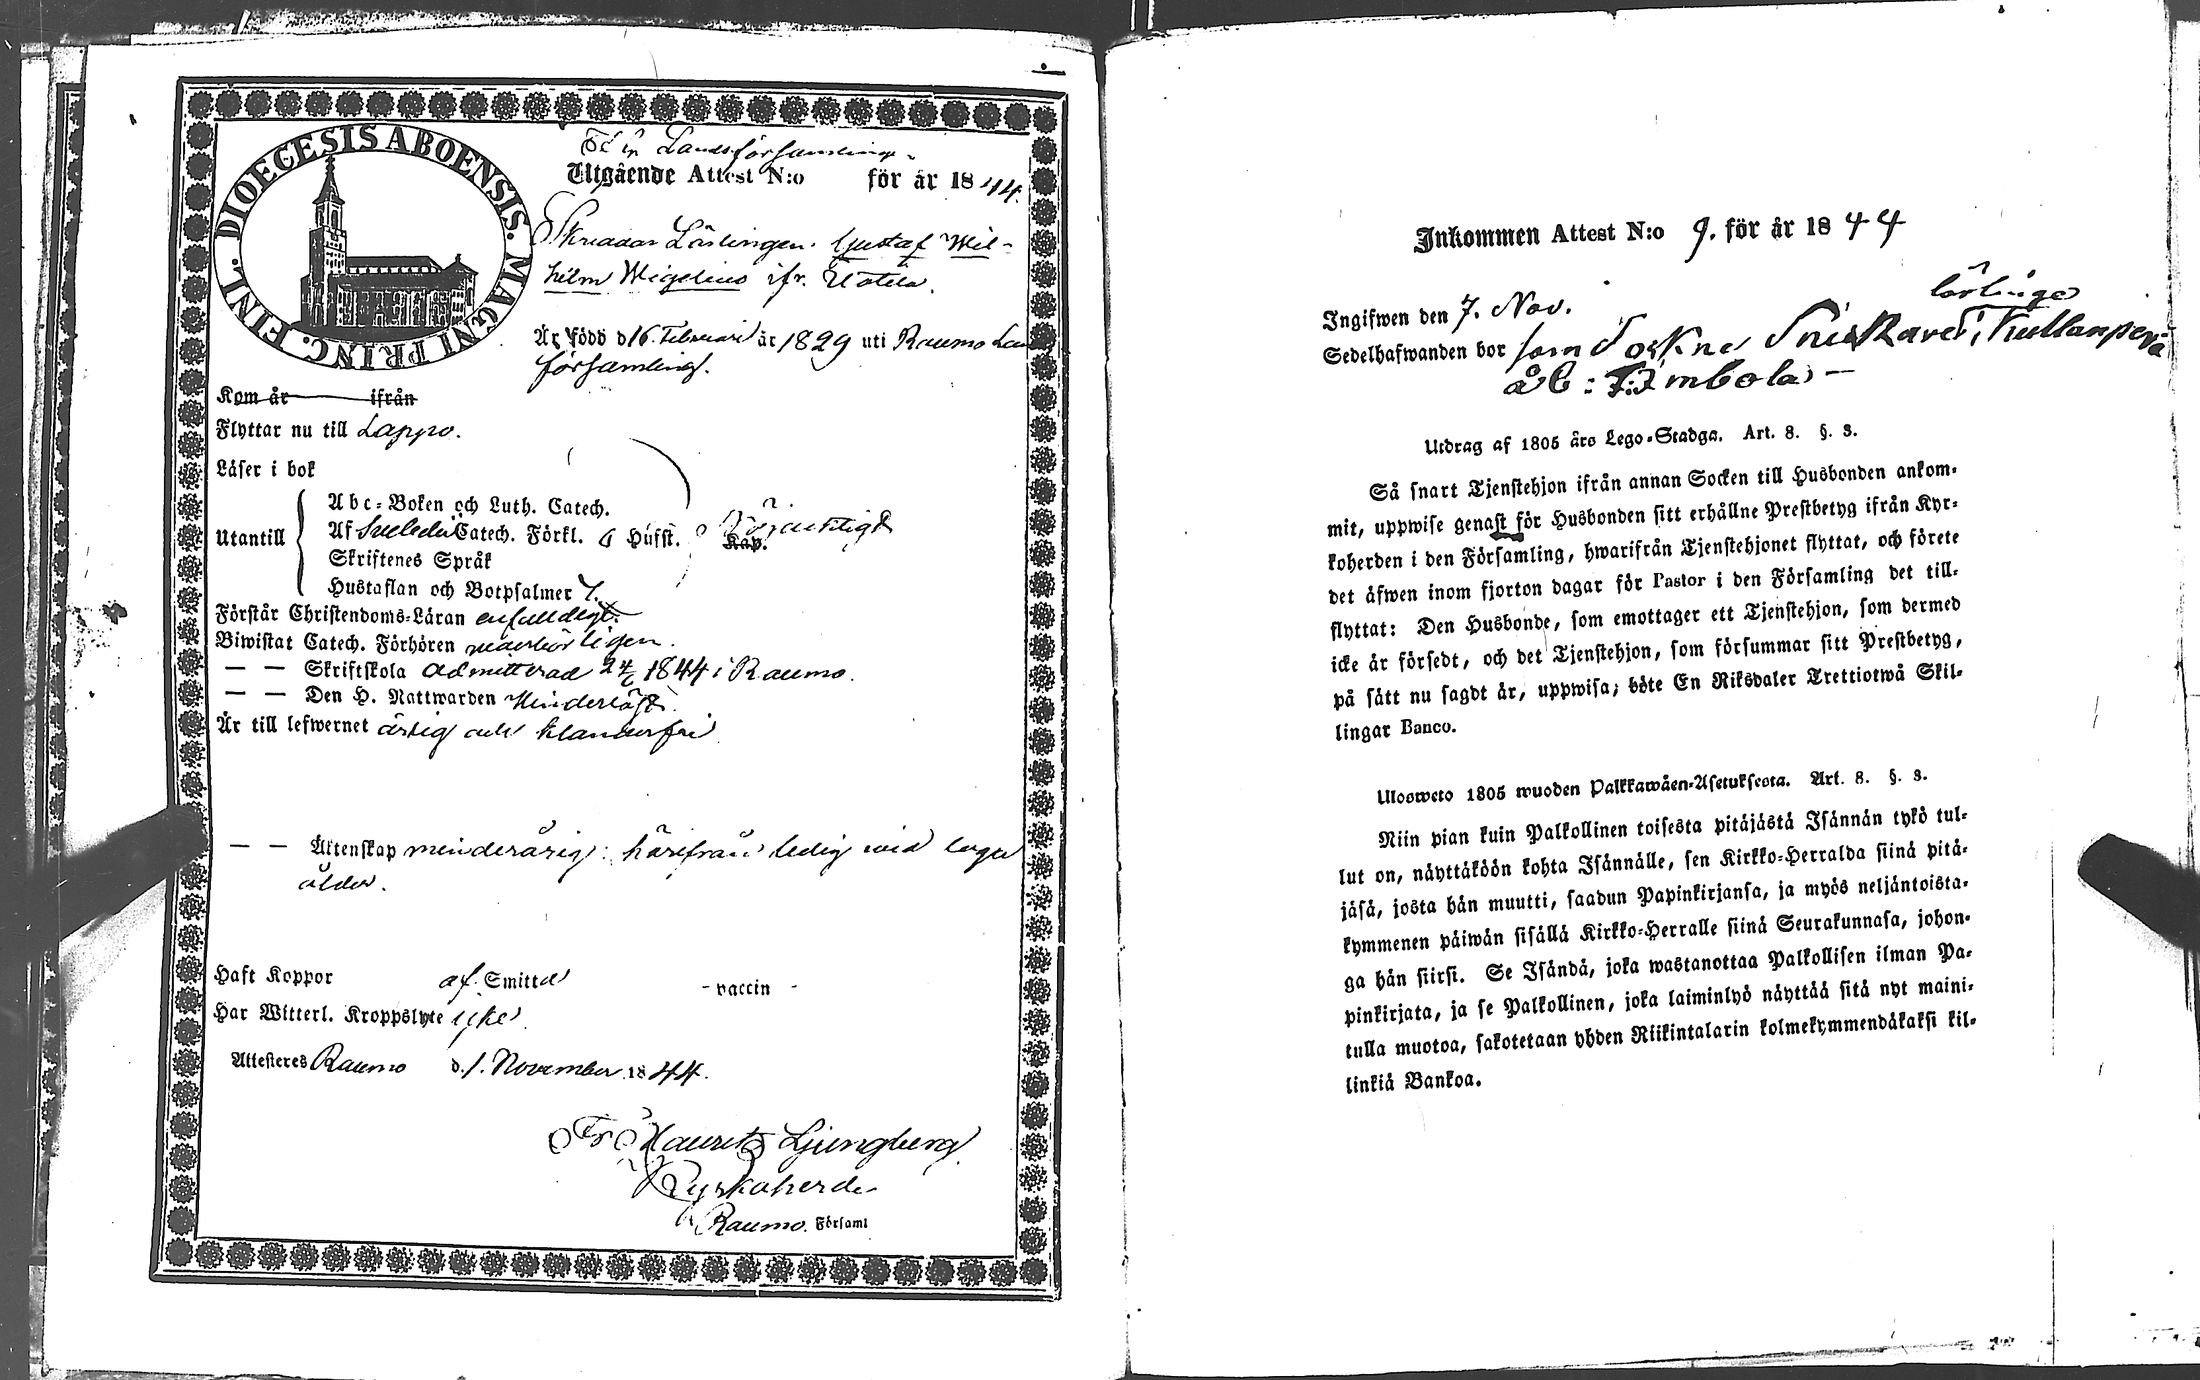 DIOECESIS ABOENSIS. MAGNI PRINC. FINL.
Landsförsamling.
Utgående Attest N:o för år 1844.
Skräddar Lärlingen Gustaf Wil-
helm Wigelius ifr.
Är född d. 16. Februari år 1829 uti Raumo Lands
församling.
Kom år ifrån
Flyttar nu till Lappo.
Läser i bok
Utantill
Abc-Boken och Luth. Catech.
Af Svebelii Catech. Förkl. 6 Hufst. Kap.
Skriftenes Språk
Hustaflan och Botpsalmer 7.
Förstår Christendoms-Läran enfaldigt.
Biwistat Catech. Förhören
— — Skriftskola admitterad 24/6 1844 i Raumo.
— — Den H. Nattwarden
Är till lefwernet ärlig och klanderfri
— — Äktenskap minderårig: härifrån ledig wid laga
ålder.
Haft Koppor af Smitta - vaccin -
Har Witterl. Kroppslyte icke
Attesteres Raumo d. 1. November 1844.
Fr. Mauritz Ljungberg
Kyrkoherde
i Raumo. Församl
Inkommen Attest N:o 9. för år 1844
Ingifwen den 7. Nov.
lärlinge
Sedelhafwanden bor som Sockne Skräddares i Kullanperä
Utdrag af 1805 års Lego-Stadga. Art. 8. §. 3.
Så snart Tjenstehjon ifrån annan Socken till Husbonden ankom-
mit, uppwise genast för Husbonden sitt erhållne Prestbetyg ifrån Kyr-
koherden i den Församling, hwarifrån Tjenstehjonet flyttat, och förete
det äfwen inom fjorton dagar för Pastor i den Församling det till-
flyttat: Den Husbonde, som emottager ett Tjenstehjon, som dermed
icke är försedt, och det Tjenstehjon, som försummar sitt Prestbetyg,
på sätt nu sagdt är, uppwisa; böte En Riksdaler Trettiotwå Skil-
lingar Banco.
Ulosweto 1805 wuoden Palkkawäen-Asetuksesta. Art. 8. §. 3.
Niin pian kuin Palkollinen toisesta pitäjästä Isännän tykö tul-
lut on, näyttäköön kohta Isännälle, sen Kirkko-Herralda siinä pitä-
jäsä, josta hän muutti, saadun Papinkirjansa, ja myös neljäntoista-
kymmenen päiwän sisällä Kirkko-Herralle siinä Seurakunnasa, johon-
ga hän siirsi. Se Isändä, joka wastanottaa Palkollisen ilman Pa-
pinkirjata, ja se Palkollinen, joka laiminlyö näyttää sitä nyt maini-
tulla muotoa, sakotetaan yhden Riikintalarin kolmekymmendäkaksi kil-
linkiä Bankoa.